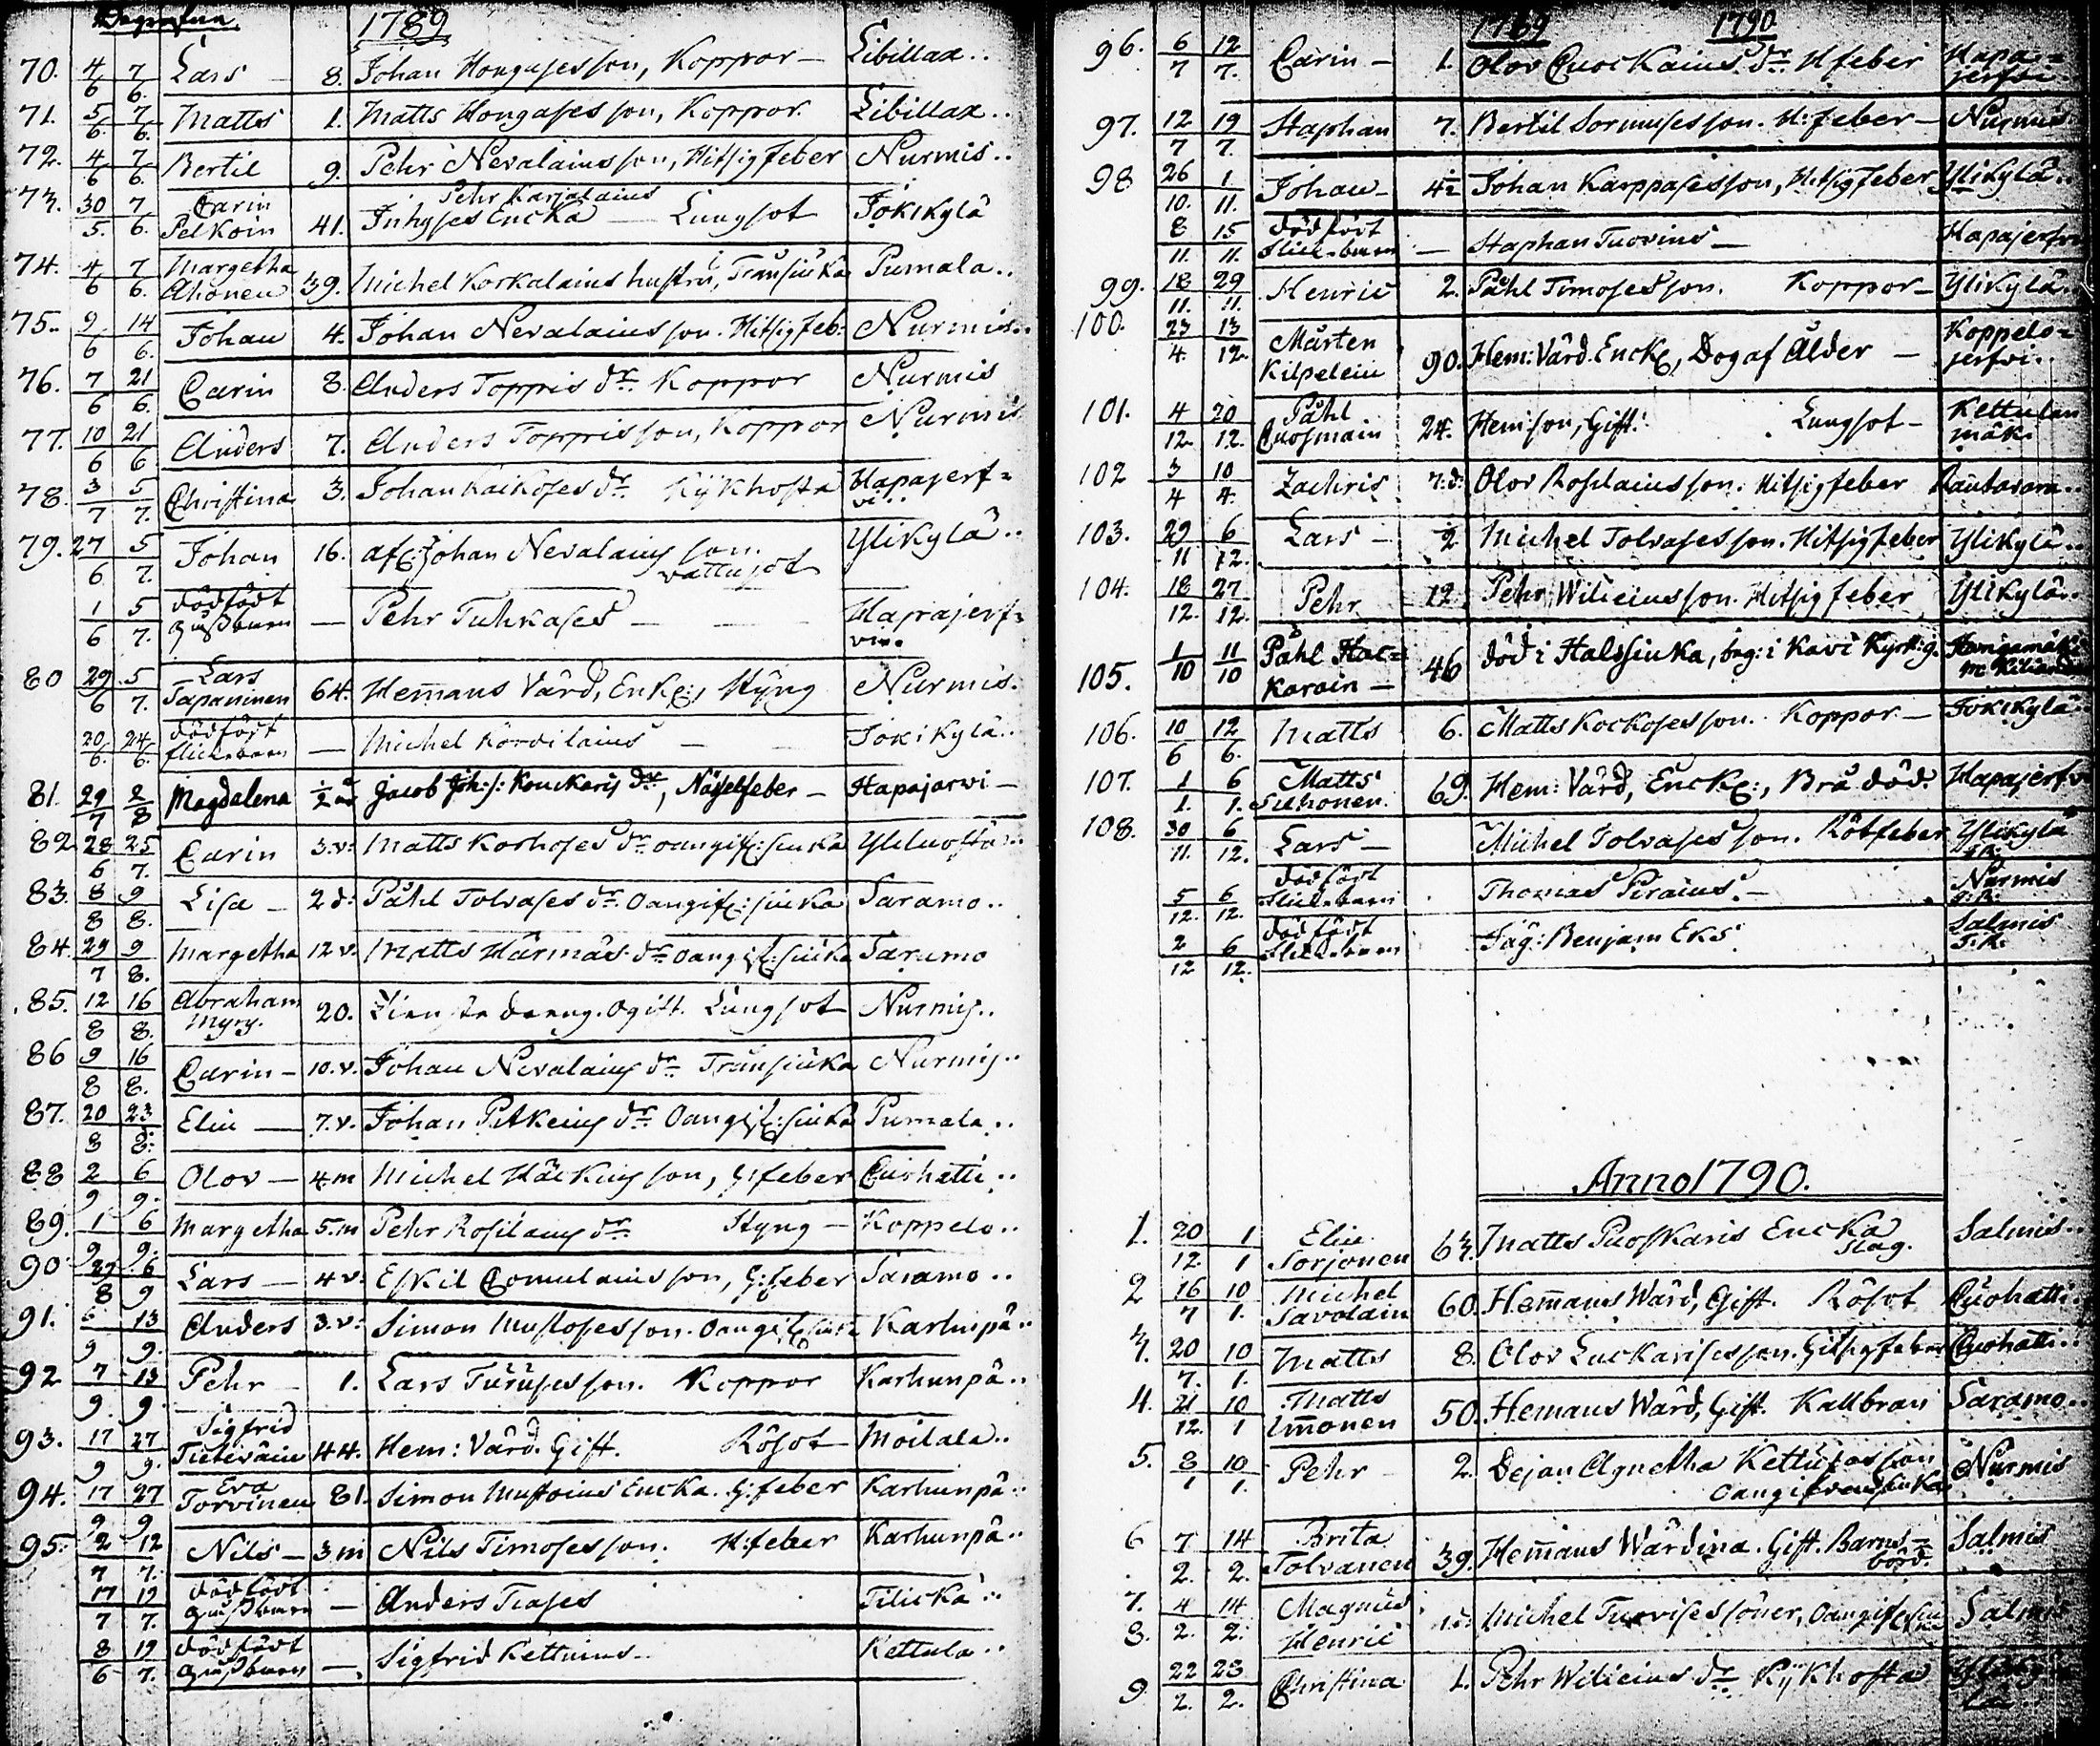 Begrafne 1789
70. 4/6 7/6. Lars — 8. Johan Hongases son, Koppor — Libillax..
71. 5/6. 7/6. Matts 1. Matts Hongases son, Koppor. Libillax..
72. 4/6 7/6. Bertil 9. Pehr Nevalains son, Hitsig feber Nurmis..
73. 30/5. 7/6. Carin Pehr Karjalains
Pelkoin 41. Inhyses Encka — Lungsot Jokikylä
74. 4/6 7/6. Margetha
Ahonen 39. Michel Korkalains hustru, Trånsiuka Pumala..
75. 9/6 14/6. Johan 4. Johan Nevalains son. Hitsig feb: Nurmis..
76. 7/6 21/6. Carin 8. Anders Toppis dr. Koppor Nurmis
77. 10/6 21/6 Anders 7. Anders Toppis son, Koppor Nurmis
78. 3/7 5/7. Christina 3. Johan Kaikoses dr. Kijkhosta Hapajerf=
vi..
79. 27/6 5/7. Johan 16. afl: Johan Nevalains son. Ylikylä..
vattusot
1/6 5/7. dödfödt
gossbarn — Pehr Tuhkases — Hapajerf=
vi..
80 29/6 5/7. Lars
Tapaninen 64. Hemans Värd, Enkl:, Styng Nurmis.
20/6. 24/6. dödfödt
flickebarn — Michel Kördilains — Jokikylä..
81. 29/7 2/8 Magdalena 1/2 år Jacob Joh:s: Kouckaris dr, Nässelfeber — Hapajarvi —
82 28/6 25/7. Carin 3.v: Matts Korhoses dr oangifl: siuka Yliluosta..
83. 8/8 9/8. Lisa — 2 d: Påhl Tolvases dr. Oangifl: siuka Saramo..
84. 29/7 9/8. Margetha 12 v. Matts Härmäs dr oangifl: siuka Saramo
85. 12/8 16/8. Abraham
Myry. 20. Tienste dreng. Ogift. Lungsot Nurmis..
86 9/8 16/8. Carin — 10.v. Johan Nevalains dr Trånsiuka Nurmis..
87. 20/8 23/8: Elin — 7.v. Johan Pitkeins dr Oangifl: siuka Pumala..
88 2/9 6/9. Olov — 4 m Michel Häckins son, H:feber Cuohatti..
89. 1/9. 6/9. Margetha 5.m Pehr Rosilains dr. Styng — Koppelo..
90 27/8 6/9 Lars — 4 v. Eskil Comulains son, H:feber Saramo..
91. 5/9 13/9. Anders 3.v: Simon Mustoses son. Oangifl siuka Karhunpä..
92 7/9. 13/9. Pehr — 1. Lars Turuses son. Koppor Karhunpä..
93. 17/9 27/9. Sigfrid
44. Hem: Värd. Gift. Rösot — Moilala..
94. 17/9 27/9 Eva
Torvinen 81. Simon Mustoins Encka. H:feber Karhunpä..
95. 2/7 12/7. Nils — 3 m Nils Timoses son. H:feber Karhunpä..
17/7 19/7. dödfödt
gossbarn — Anders Tiases Tilicka..
8/6 19/7. dödfödt
gossbarn — Sigfrid Kettuins — Kettula..
1789 1790
96. 6/7 12/7. Carin — 1. Olov Cuockains dr. H feber Hapa=
jerfvi
97. 12/7 19/7. Staphan 7. Bertil Sormuses son. H:feber — Nurmis
98 26/10. 1/11. Johan — 4 1/2 Johan Karppases son, Hitsig feber Ylikylä..
8/11. 15/11. dödfödt
flickebarn — Staphan Tuovins — Hapajerfvi
99. 18/11. 29/11. Henric 2. Påhl Timoses son. Koppor — Ylikylä..
100. 23/4. 13/12. Mårten
Kilpelein 90. Hem: Värd. Enckl, Dog af Ålder — Koppelo=
jerfvi..
101. 4/12 20/12. Påhl
Cuosmain 24. Hemison, Gift. Lungsot — Kettulan
mäk.
102 3/4 10/4. Zachris 7.d: Olov Rosilains son. Hitsig feber Rautavara..
103. 29/11 6/12. Lars — 1/2 Michel Tolvases son. Hitsig feber Ylikylä..
104. 18/12. 27/12. Pehr 12. Pehr Wilicius son. Hitsig feber Ylikylä..
105. 1/10 11/10 Påhl Hac=
karain — 46 död i Halssiuka, beg: i Kavi Kyrk:g.
106. 10/6 12/6. Matts 6. Matts Kockoses son. Koppor — Jokikylä
107. 1/1. 6/1. Matts
Suhonen. 69. Hem: Värd, Enckl:, Brådöd. Hapajerfvi
108. 30/11. 6/12. Lars — Michel Tolvases son. Rötfeber Ylikylä
5/12. 6/12. dödfödt
flickebarn Thomas Pirains — Nurmis
2/12 6/12. dödfödt
flickebarn Jäg: Benjam Eks Salmis
Anno 1790.
1. 20/12. 1/1 Elin
Sorjonen 67. Matts Puoskaris Encka Salmis..
Slag.
2 16/7 10/1. Michel
Savolain 60. Hemans Wärd, Gift. Rösot Cuohatti..
3. 20/7. 10/1. Matts 8. Olov Luckarises son. Hitsig feber Cuohatti..
4. 21/12. 10/1 Matts
Immonen 50. Hemans Wärd, Gift. Kallbran Saramo..
5. 8/1 10/1. Pehr — 2. Dejan Agnetha Kettutars son Nurmis
Oangifven siuka
6 7/2. 14/2. Brita
Tolvanen 39. Hemans Wärdina. Gift. Barns= Salmis
börd.
7. 4/2. 14/2. Magnus
8. Henric Michel Turvises söner, Oangifl: siuka Salmis
9 22/2. 23/2. Christina 1. Pehr Wilicius dr Kijkhosta Ylikylä